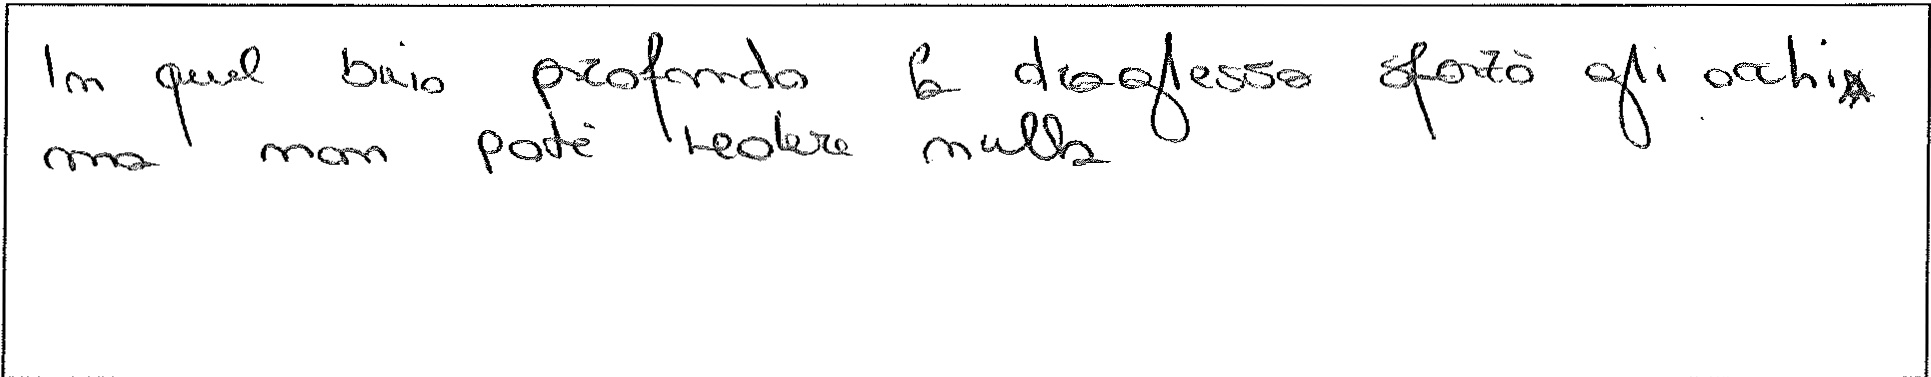 In quel buio profondo la draglessa sforzò gli occhi
ma non poté vedere nulla